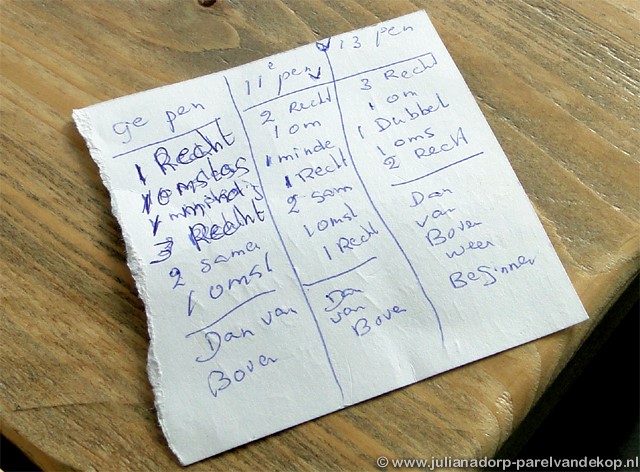 9e pen
1 Recht
1 omslag
3 Recht
2 same
1 omsl
Dan van
Boven
11e pen
2 Recht
1 om
1 minde
1 Recht
2 sam
1 omsl
1 Recht
Dan
van
Boven
13 pen
3 Recht
1 om
1 Dubbel
1 oms
2 Recht
Dan
van
Boven
weer
Beginnen
© www.julianadorp-parelvandekop.nl